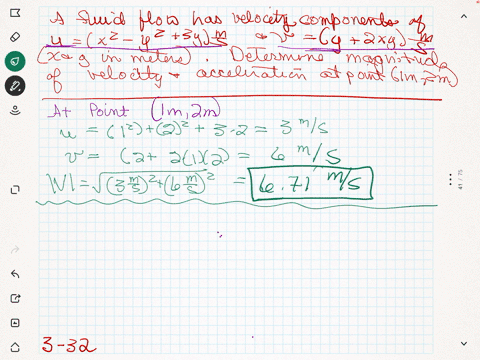 A fluid flow has velocity components of
u = (x² - y² + 3y) m/s & v = (y + 2xy) m/s
(x & y in meters). Determine magnitude
of velocity & acceleration at point (1m, 2m)
At Point (1m, 2m)
u = (1²) + (2)² + 3·2 = 3 m/s
v = (2 + 2(1)(2) = 6 m/s
|V| = √(3 m/s)² + (6 m/s)² = 6.71 m/s
41 / 75
3-32